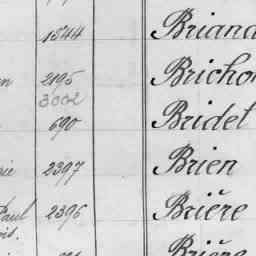 1544 Briand
2195 Brichon
3002
690 Bridet
2397 Brien
Paul 2396 Brière
Brière